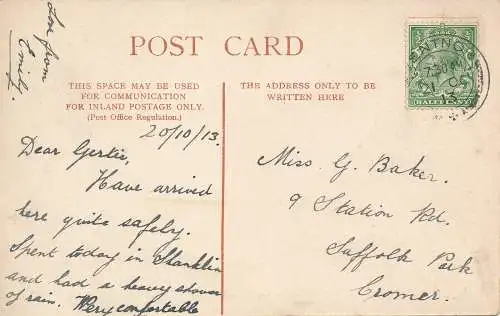 Love from
Emily.
POST CARD
THIS SPACE MAY BE USED
FOR COMMUNICATION
FOR INLAND POSTAGE ONLY.
(Post Office Regulation.)
THE ADDRESS ONLY TO BE
WRITTEN HERE
HALFPENNY
20/10/13.
Dear Gertie,
Have arrived
here quite safely.
Spent today in Shanklin
and had a heavy shower
of rain. Very comfortable
Miss G. Baker.
9 Station Rd.
Suffolk Park
Cromer.